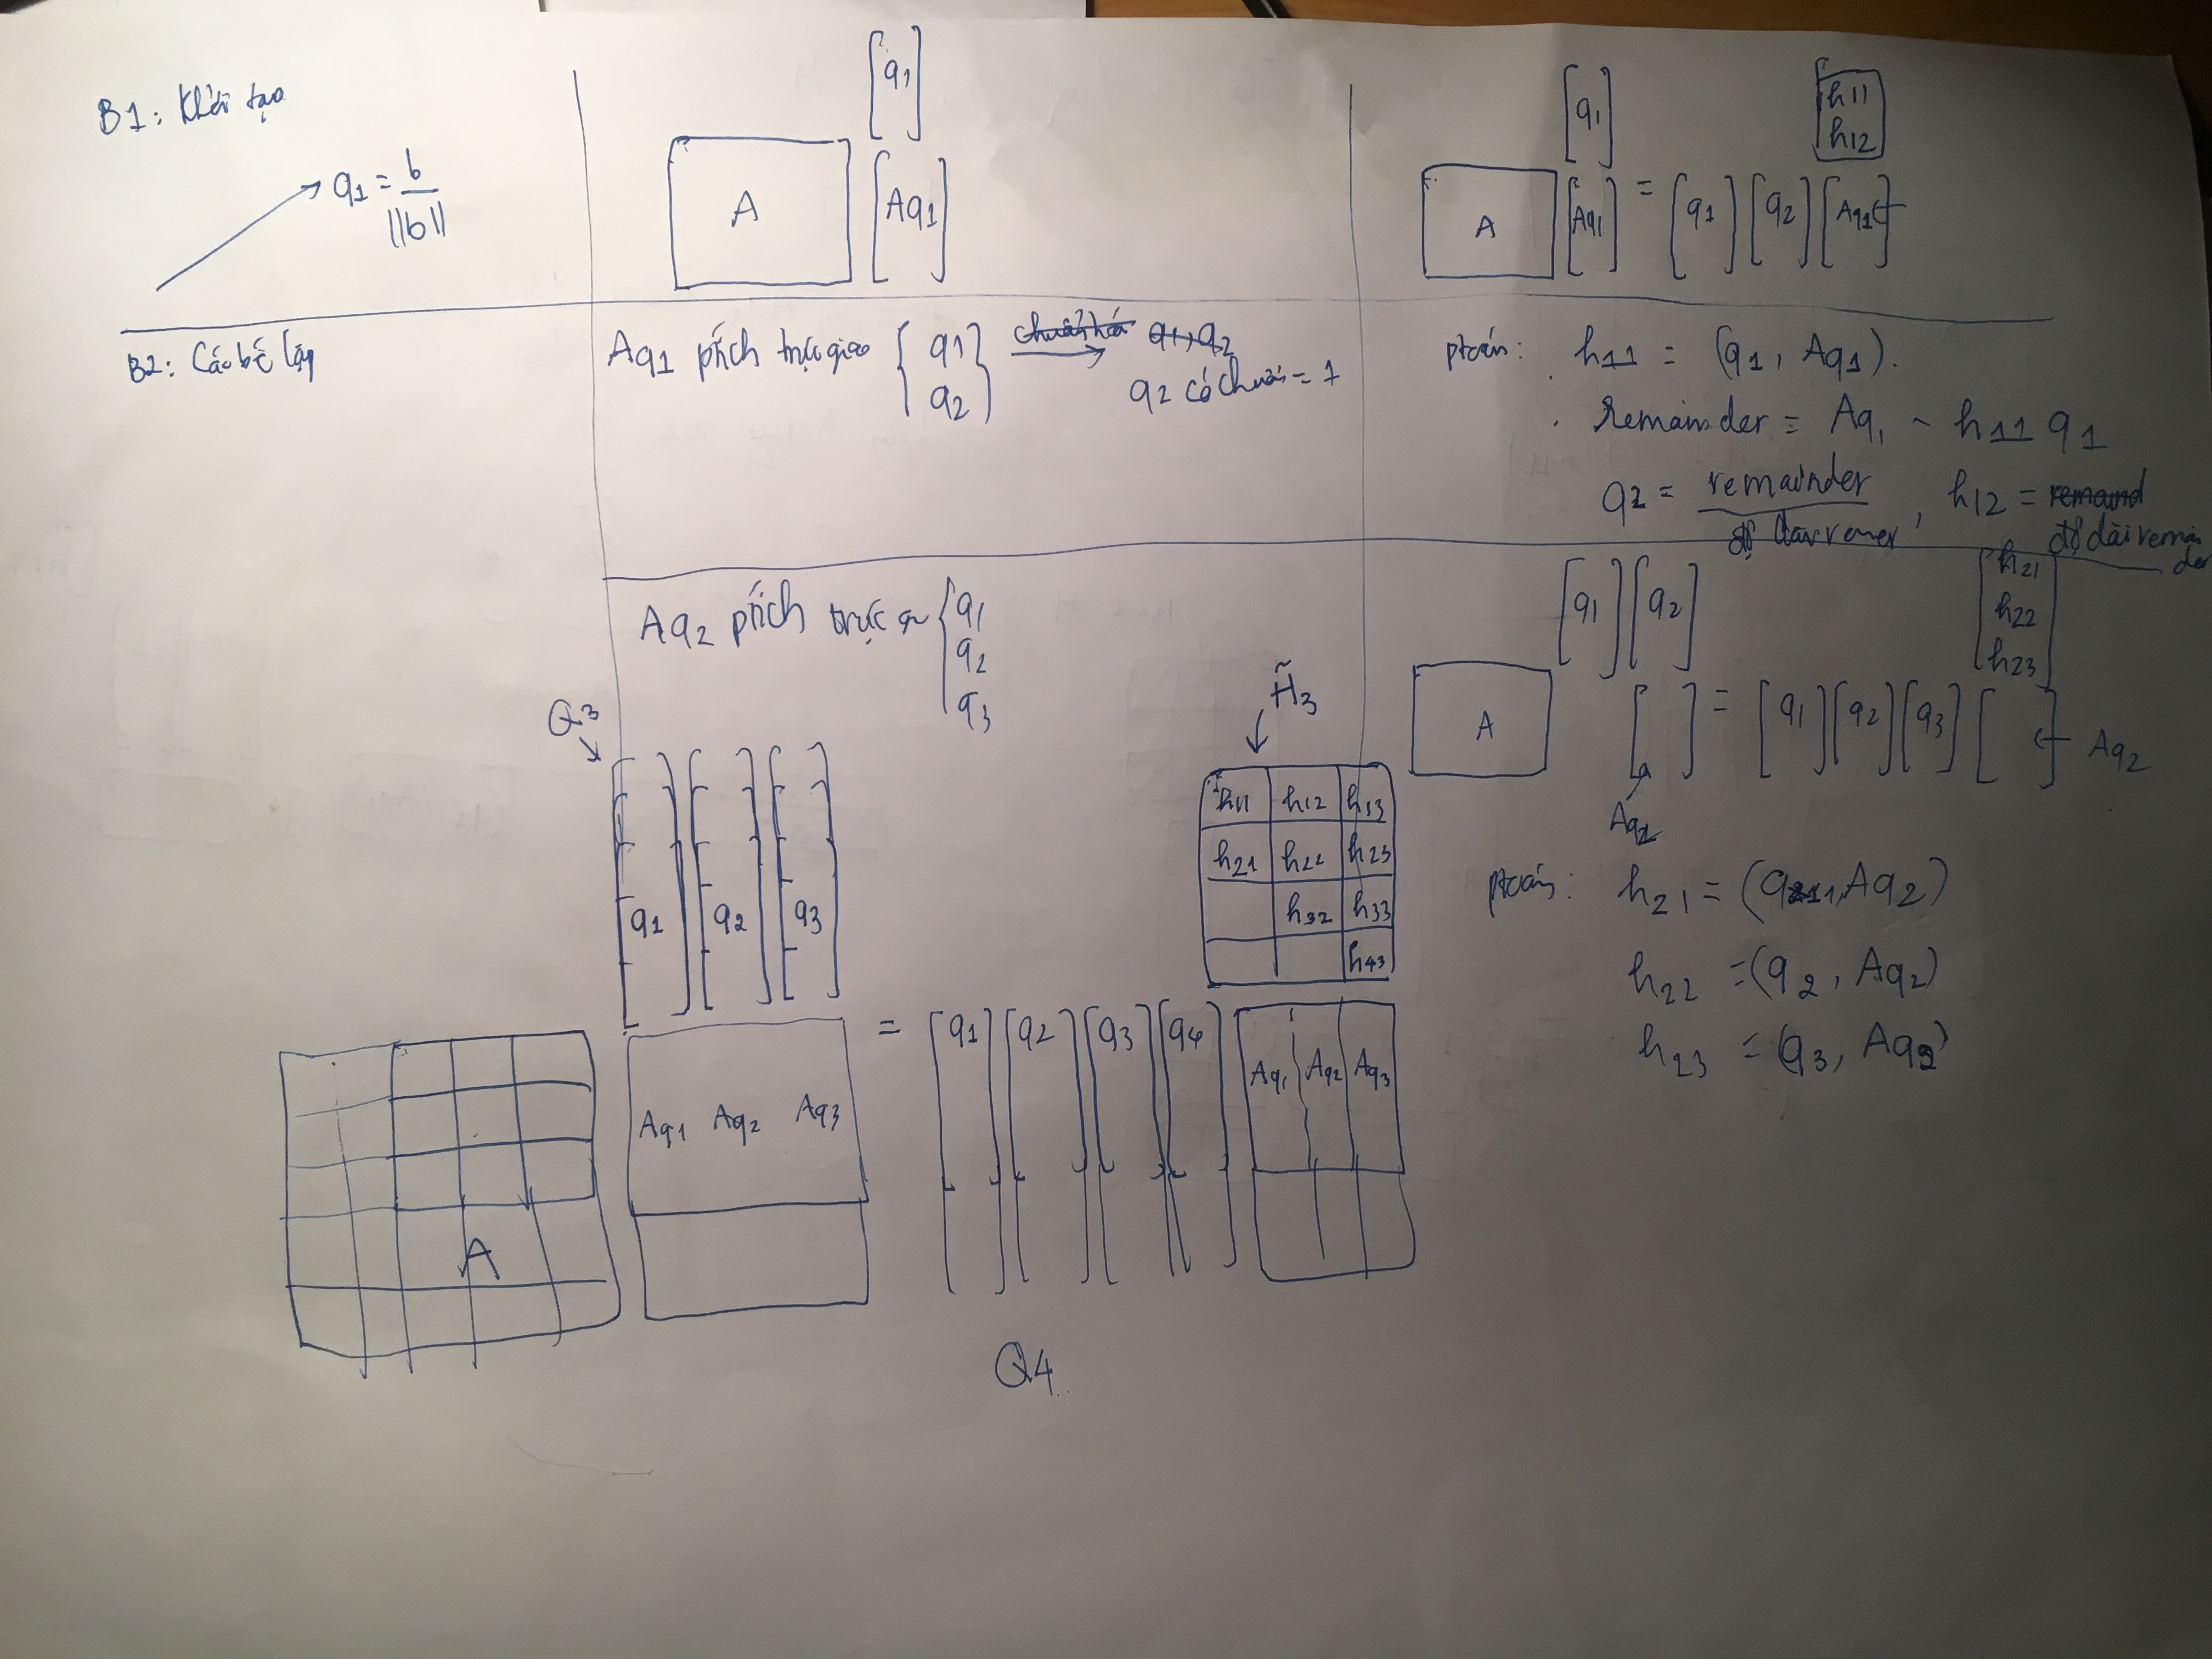 B1: Khởi tạo
q1 = b
||b||
[q1]
A [Aq1]
[q1] [h11
h12]
A [Aq1] = [q1] [q2] [Aq1]
B2: Các bc lặp
Aq1 ptích trực giao { q1 q2 } chuẩn hoá q1, q2
q2 có chuẩn = 1
ptoán: h11 = (q1, Aq1).
Remainder = Aq1 - h11 q1
q2 = remainder , h12 = remaind
độ dài remainder
Aq2 ptích trực { q1
q2
q3
[q1] [q2] [h21
h22
h23]
A [ ] = [q1] [q2] [q3] [ ] Aq2
Aq2
ptoán: h21 = (q1, Aq2)
h22 = (q2, Aq2)
h23 = (q3, Aq2)
Q3 H̃3
h11 h12 h13
h21 h22 h23
h32 h33
h43
[q1] [q2] [q3]
A Aq1 Aq2 Aq3 = [q1] [q2] [q3] [q4] Aq1 Aq2 Aq3
Q4